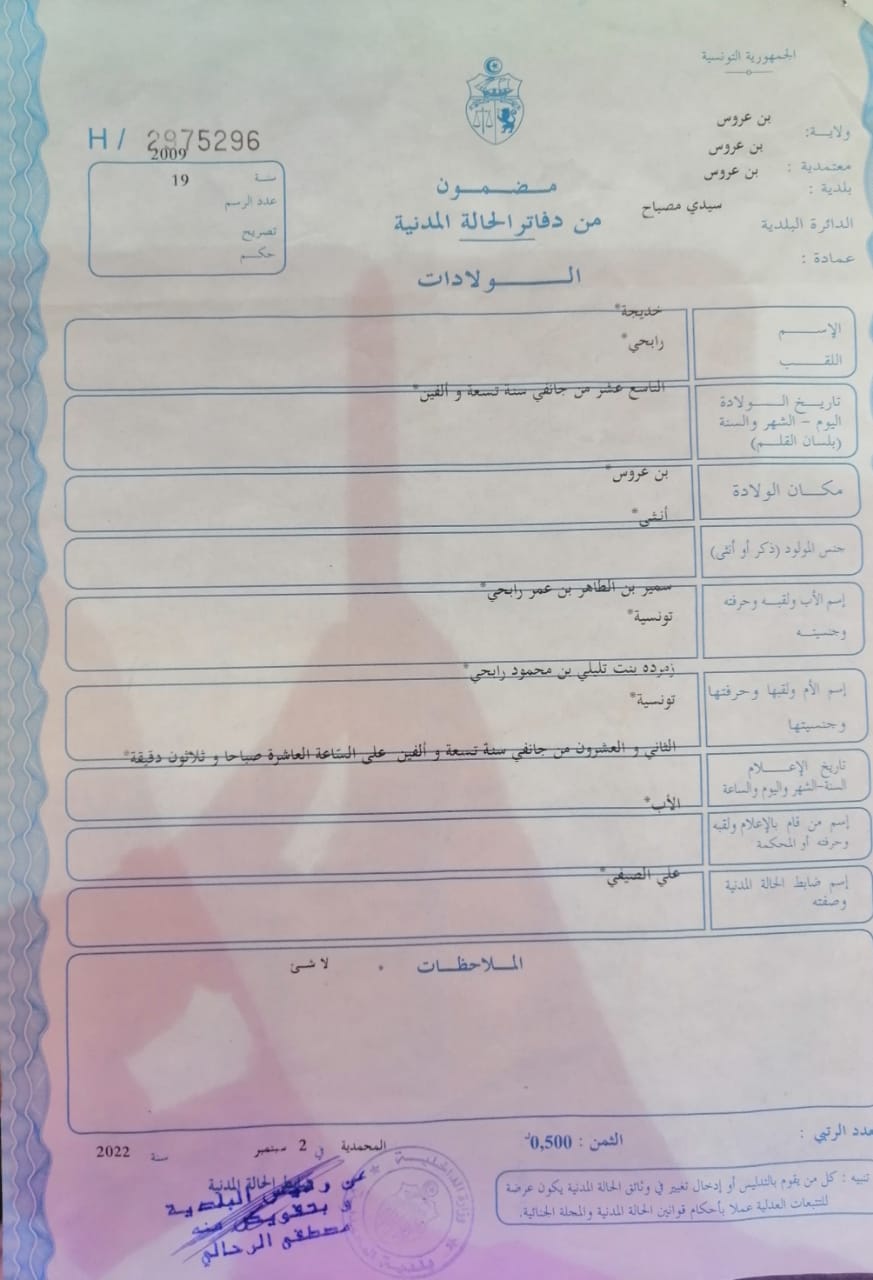 الجمهورية التونسية
ولاية: بن عروس
معتمدية : بن عروس
بلدية : بن عروس
الدائرة البلدية سيدي مصباح
عمادة :
H / 2975296
سنة 2009
عدد الرسم 19
تصريح
حكم
مضمون
من دفاتر الحالة المدنية
الولادات
الإسم خديجة*
اللقب رابحي*
تاريخ الولادة التاسع عشر من جانفي سنة تسعة و ألفين*
اليوم – الشهر والسنة
(بلسان القلم)
مكان الولادة بن عروس*
جنس المولود (ذكر أو أنثى) أنثى*
إسم الأب ولقبه وحرفته سمير بن الطاهر بن عمر رابحي*
وجنسيته تونسية*
إسم الأم ولقبها وحرفتها زمرده بنت تليلي بن محمود رابحي*
وجنسيتها تونسية*
تاريخ الإعلام الثاني و العشرون من جانفي سنة تسعة و ألفين على الساعة العاشرة صباحا و ثلاثون دقيقة*
السنة-الشهر واليوم والساعة
إسم من قام بالإعلام ولقبه الأب*
وحرفته أو المحكمة
إسم ضابط الحالة المدنية علي الصيفي*
وصفته
الملاحظات * لا شئ
عدد الرتبي :
الثمن : 0,500د
المحمدية في 2 سبتمبر سنة 2022
تنبيه : كل من يقوم بالتدليس أو إدخال تغيير في وثائق الحالة المدنية يكون عرضة
للتتبعات العدلية عملا بأحكام قوانين الحالة المدنية والمجلة الجنائية.
ضابط الحالة المدنية
عن رئيس البلدية
و بتفويض منه
مصطفى الرحالي